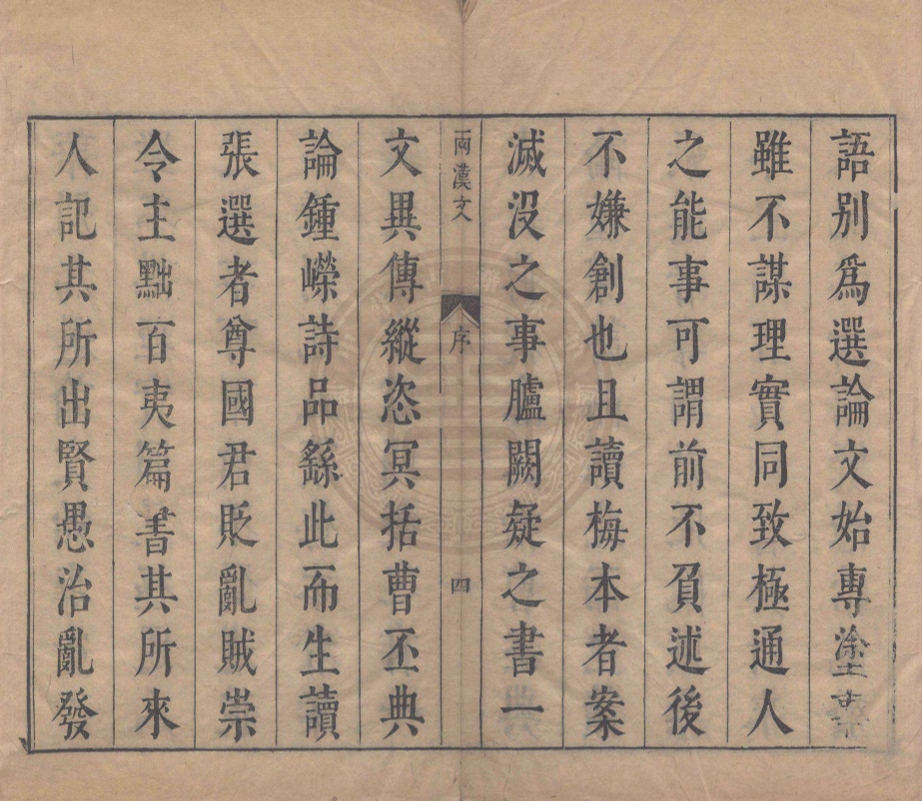 語別爲選論文始專塗
雖不謀理實同致極通人
之能事可謂前不負述後
不嫌創也且讀梅本者案
滅沒之事臚闕疑之書一
兩漢文 序 四
文異傳縱恣冥括曹丕典
論鍾嶸詩品繇此而生讀
張選者尊國君貶亂賊崇
令主黜百夷篇書其所來
人記其所出賢愚治亂發